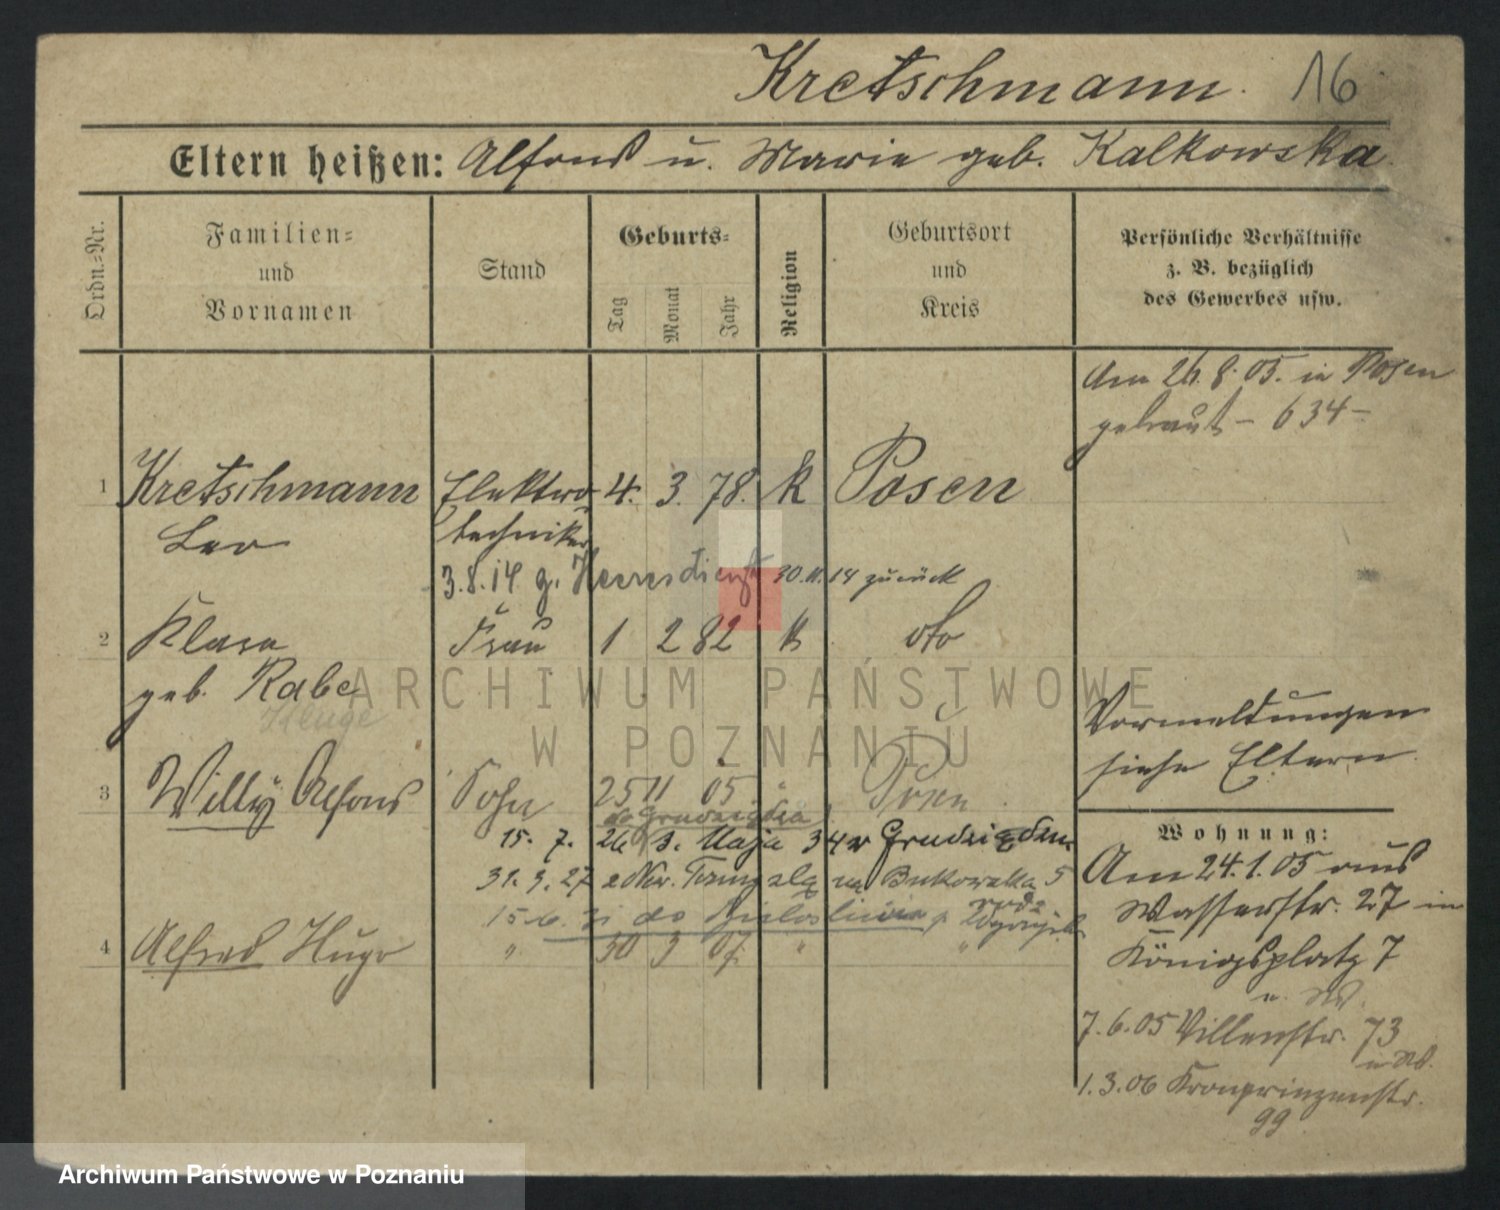 Kretschmann. 16
Eltern heißen: Alfons u. Marie geb. Kalkowska.
Ordn.=Nr.
Familien=
und
Vornamen
Stand
Geburts=
Tag
Monat
Jahr
Religion
Geburtsort
und
Kreis
Persönliche Verhältnisse
z. B. bezüglich
des Gewerbes usw.
Am 26.8.05. in Posen
getraut – 634 –
1 Kretschmann Elektro 4. 3. 78. k Posen
Leo techniker
3.8.14 z. Heeresdienst 30.11.14 zurück
2 Klara Frau 1 2 82 k dto
geb. Rabe
Kluge
ARCHIWUM PAŃSTWOWE
W POZNANIU
Vormeldungen
siehe Eltern.
3 Willy Alfons Sohn 25 11 05 " Posen
do Grudziądza
15. 7. 26 3. Maja 34 v Grudziądzu
31. 3. 27 na Bukowska 5
15.6. do
4 Alfred Hugo " 30 3 07. " "
Wohnung:
Am 24.1.05 aus
Wasserstr. 27 in
Königsplatz 7
7.6.05 Villenstr. 73
1.3.06 Kronprinzenstr.
99
Archiwum Państwowe w Poznaniu